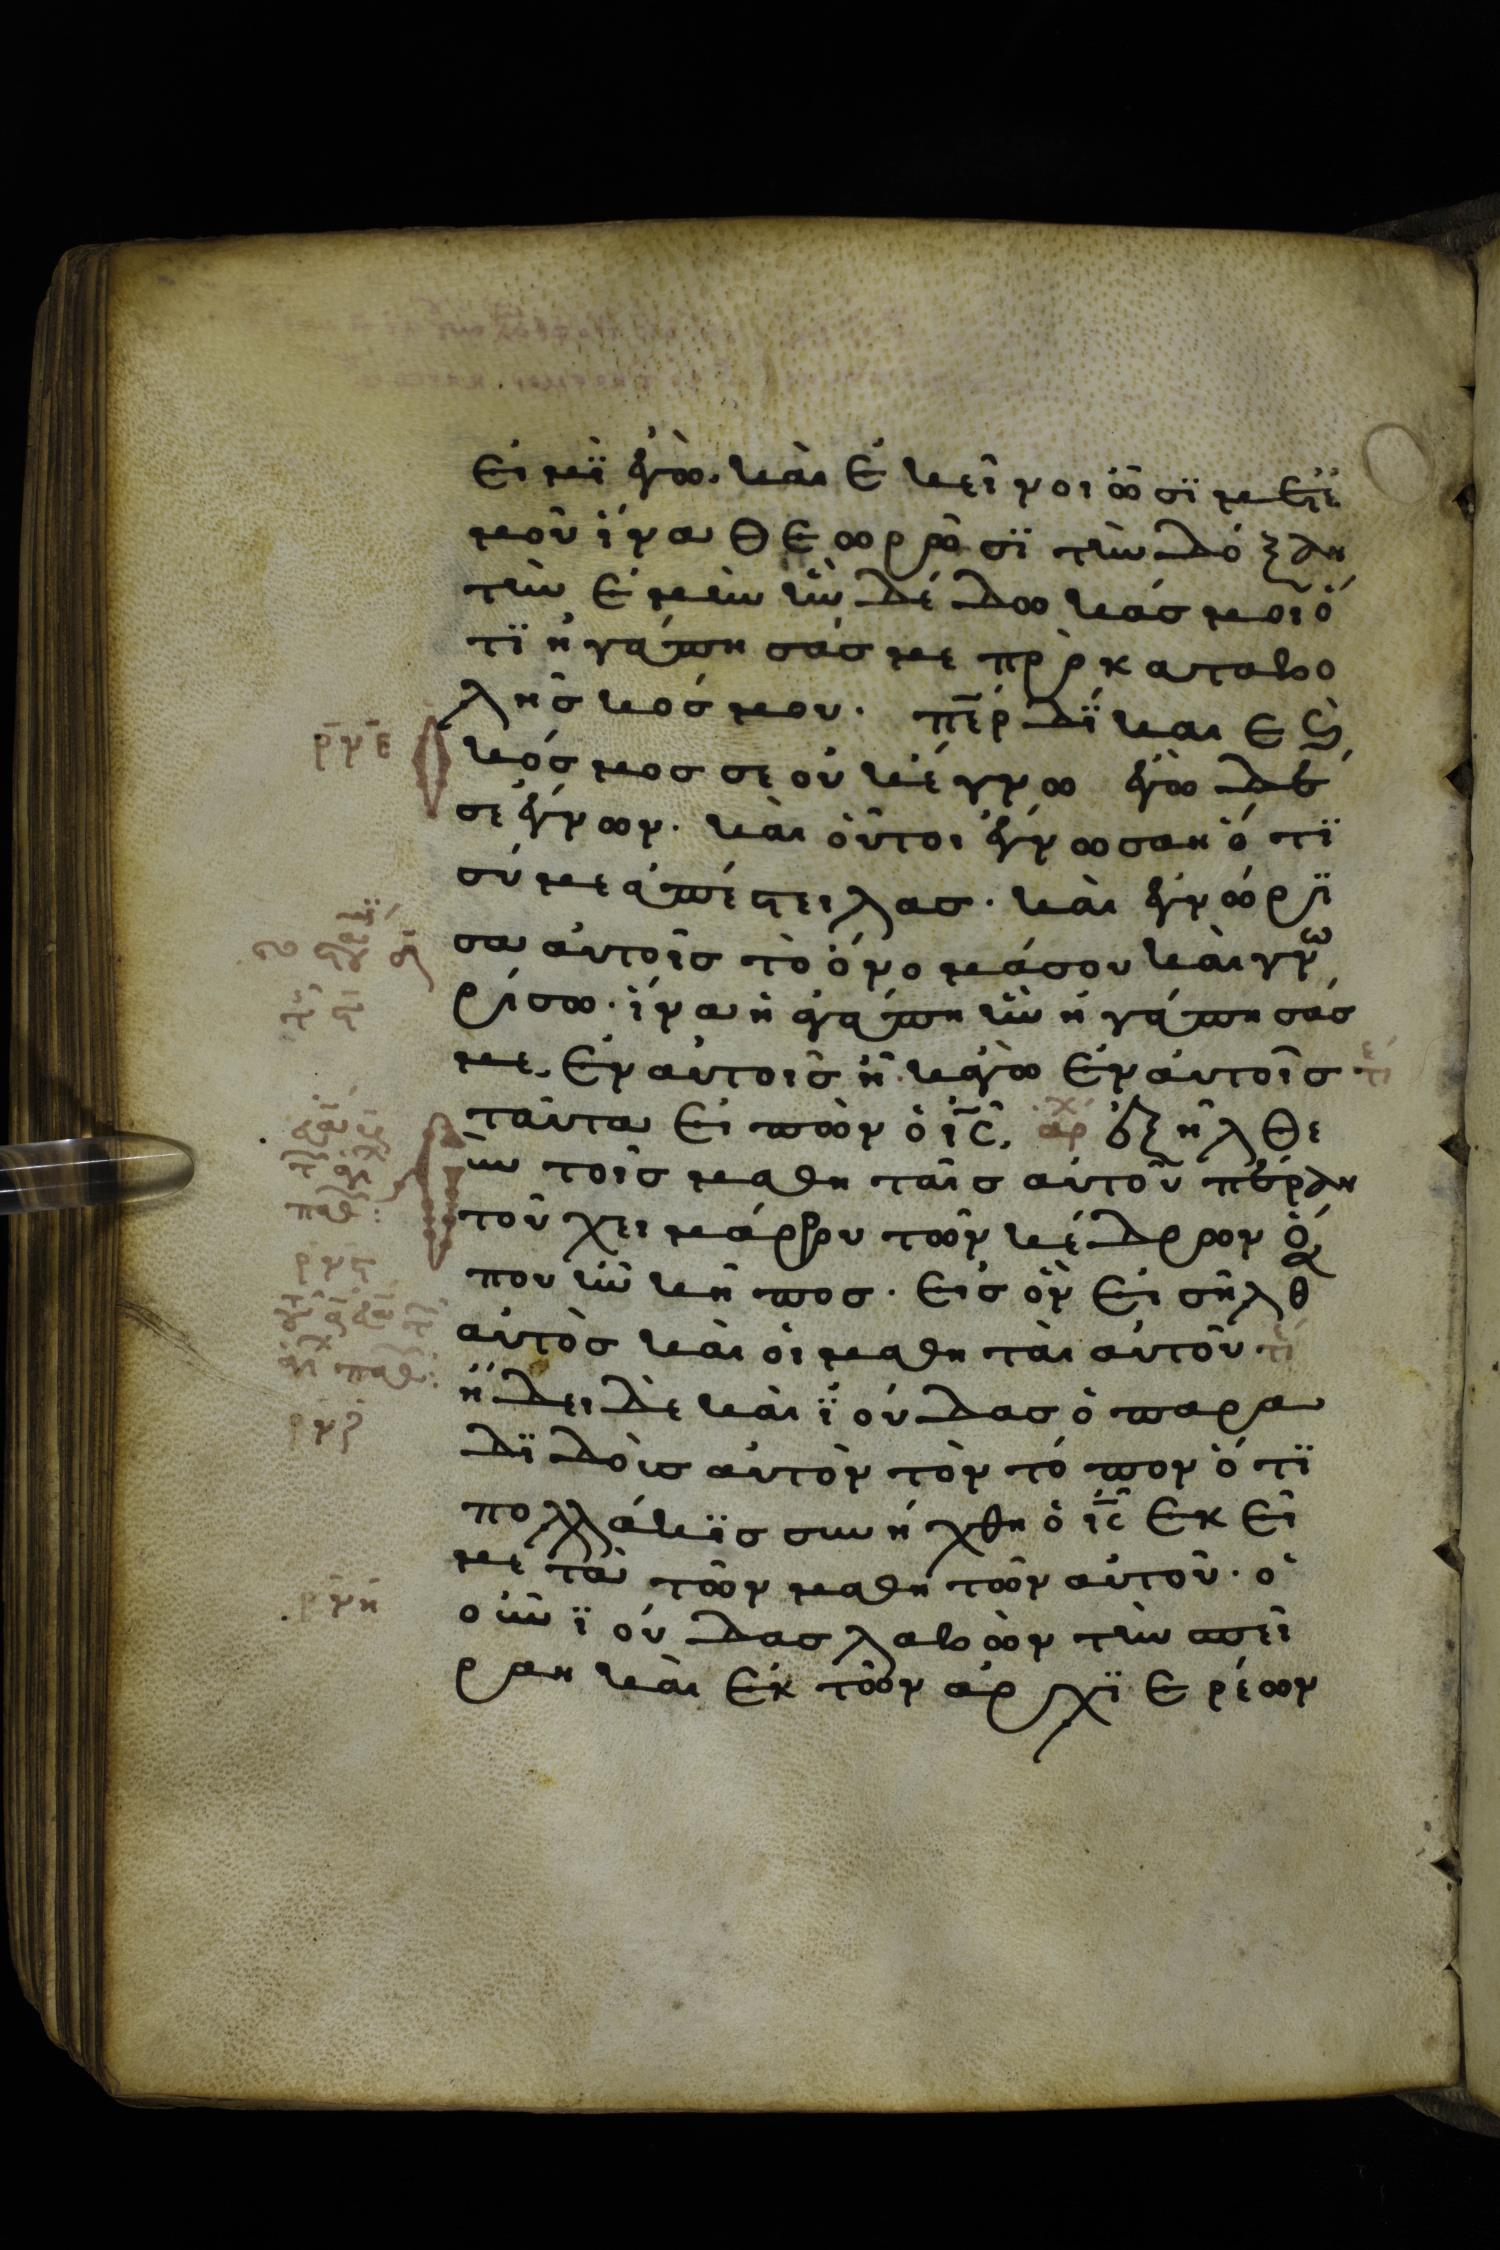 εἰμὶ ἐγὼ. καὶ ἐκεῖνοι ὦσϊ μετἐ
μοῦ ἵνα θεωρῶσϊ τὴν δόξαν
τὴν ἐμὴν ἣν δέδωκάσ μοι ὅ
τϊ ἠγάπησάσ με πρὸ καταβο
λῆσ κόσμου. περ δΐκαι ε ὁ
κόσμοσ σε οὐκ ἔγνω ἐγὼ δέ
σε ἔγνων. καὶ οὗτοι ἔγνωσαν ὅτϊ
σύ με ἀπέστειλασ. καὶ ἐγνώρϊ
σα αὐτοῖσ τὸ ὄνομά σου καὶ γνω
ρίσω. ἵνα ἡ ἀγάπη ἣν ἠγάπησάσ
με. ἐν αὐτοῖσ ἦ. κἀγὼ ἐν αὐτοῖσ
ταῦτα εἰπὼν ὁ ιϲ. ἐξῆλθε
ὺν τοῖσ μαθηταῖσ αὐτοῦ πέραν
τοῦ χειμάρρου τῶν κέδρρον ὅ
που ἦν κῆποσ. εἰσ ὃν εἰσῆλθ
αὐτὸσ καὶ οἱ μαθηταὶ αὐτοῦ
ἤδει δὲ καὶ ϊούδασ ὁ παρα
δϊδοὺσ αὐτὸν τὸν τόπον ὅτϊ
πολλάκϊσ συνήχθη ὁ ιϲ ἐκεῖ
μετὰ τῶν μαθητῶν αὐτοῦ. ὁ
οὖν ϊούδασ λαβὼν τὴν σπεῖ
ραν καὶ ἐκ τῶν ἀρχϊερέων
ρνε
ρνϛ
ρνζ
ρνη